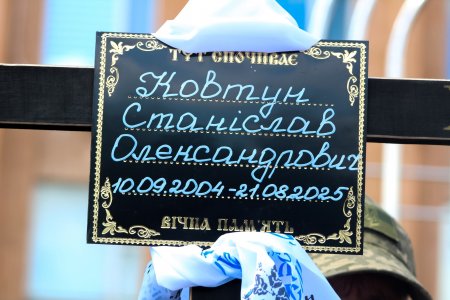 ТУТ СПОЧИВАЄ
Ковтун
Станіслав
Олександрович
10.09.2004-21.08.2025
ВІЧНА ПАМ'ЯТЬ